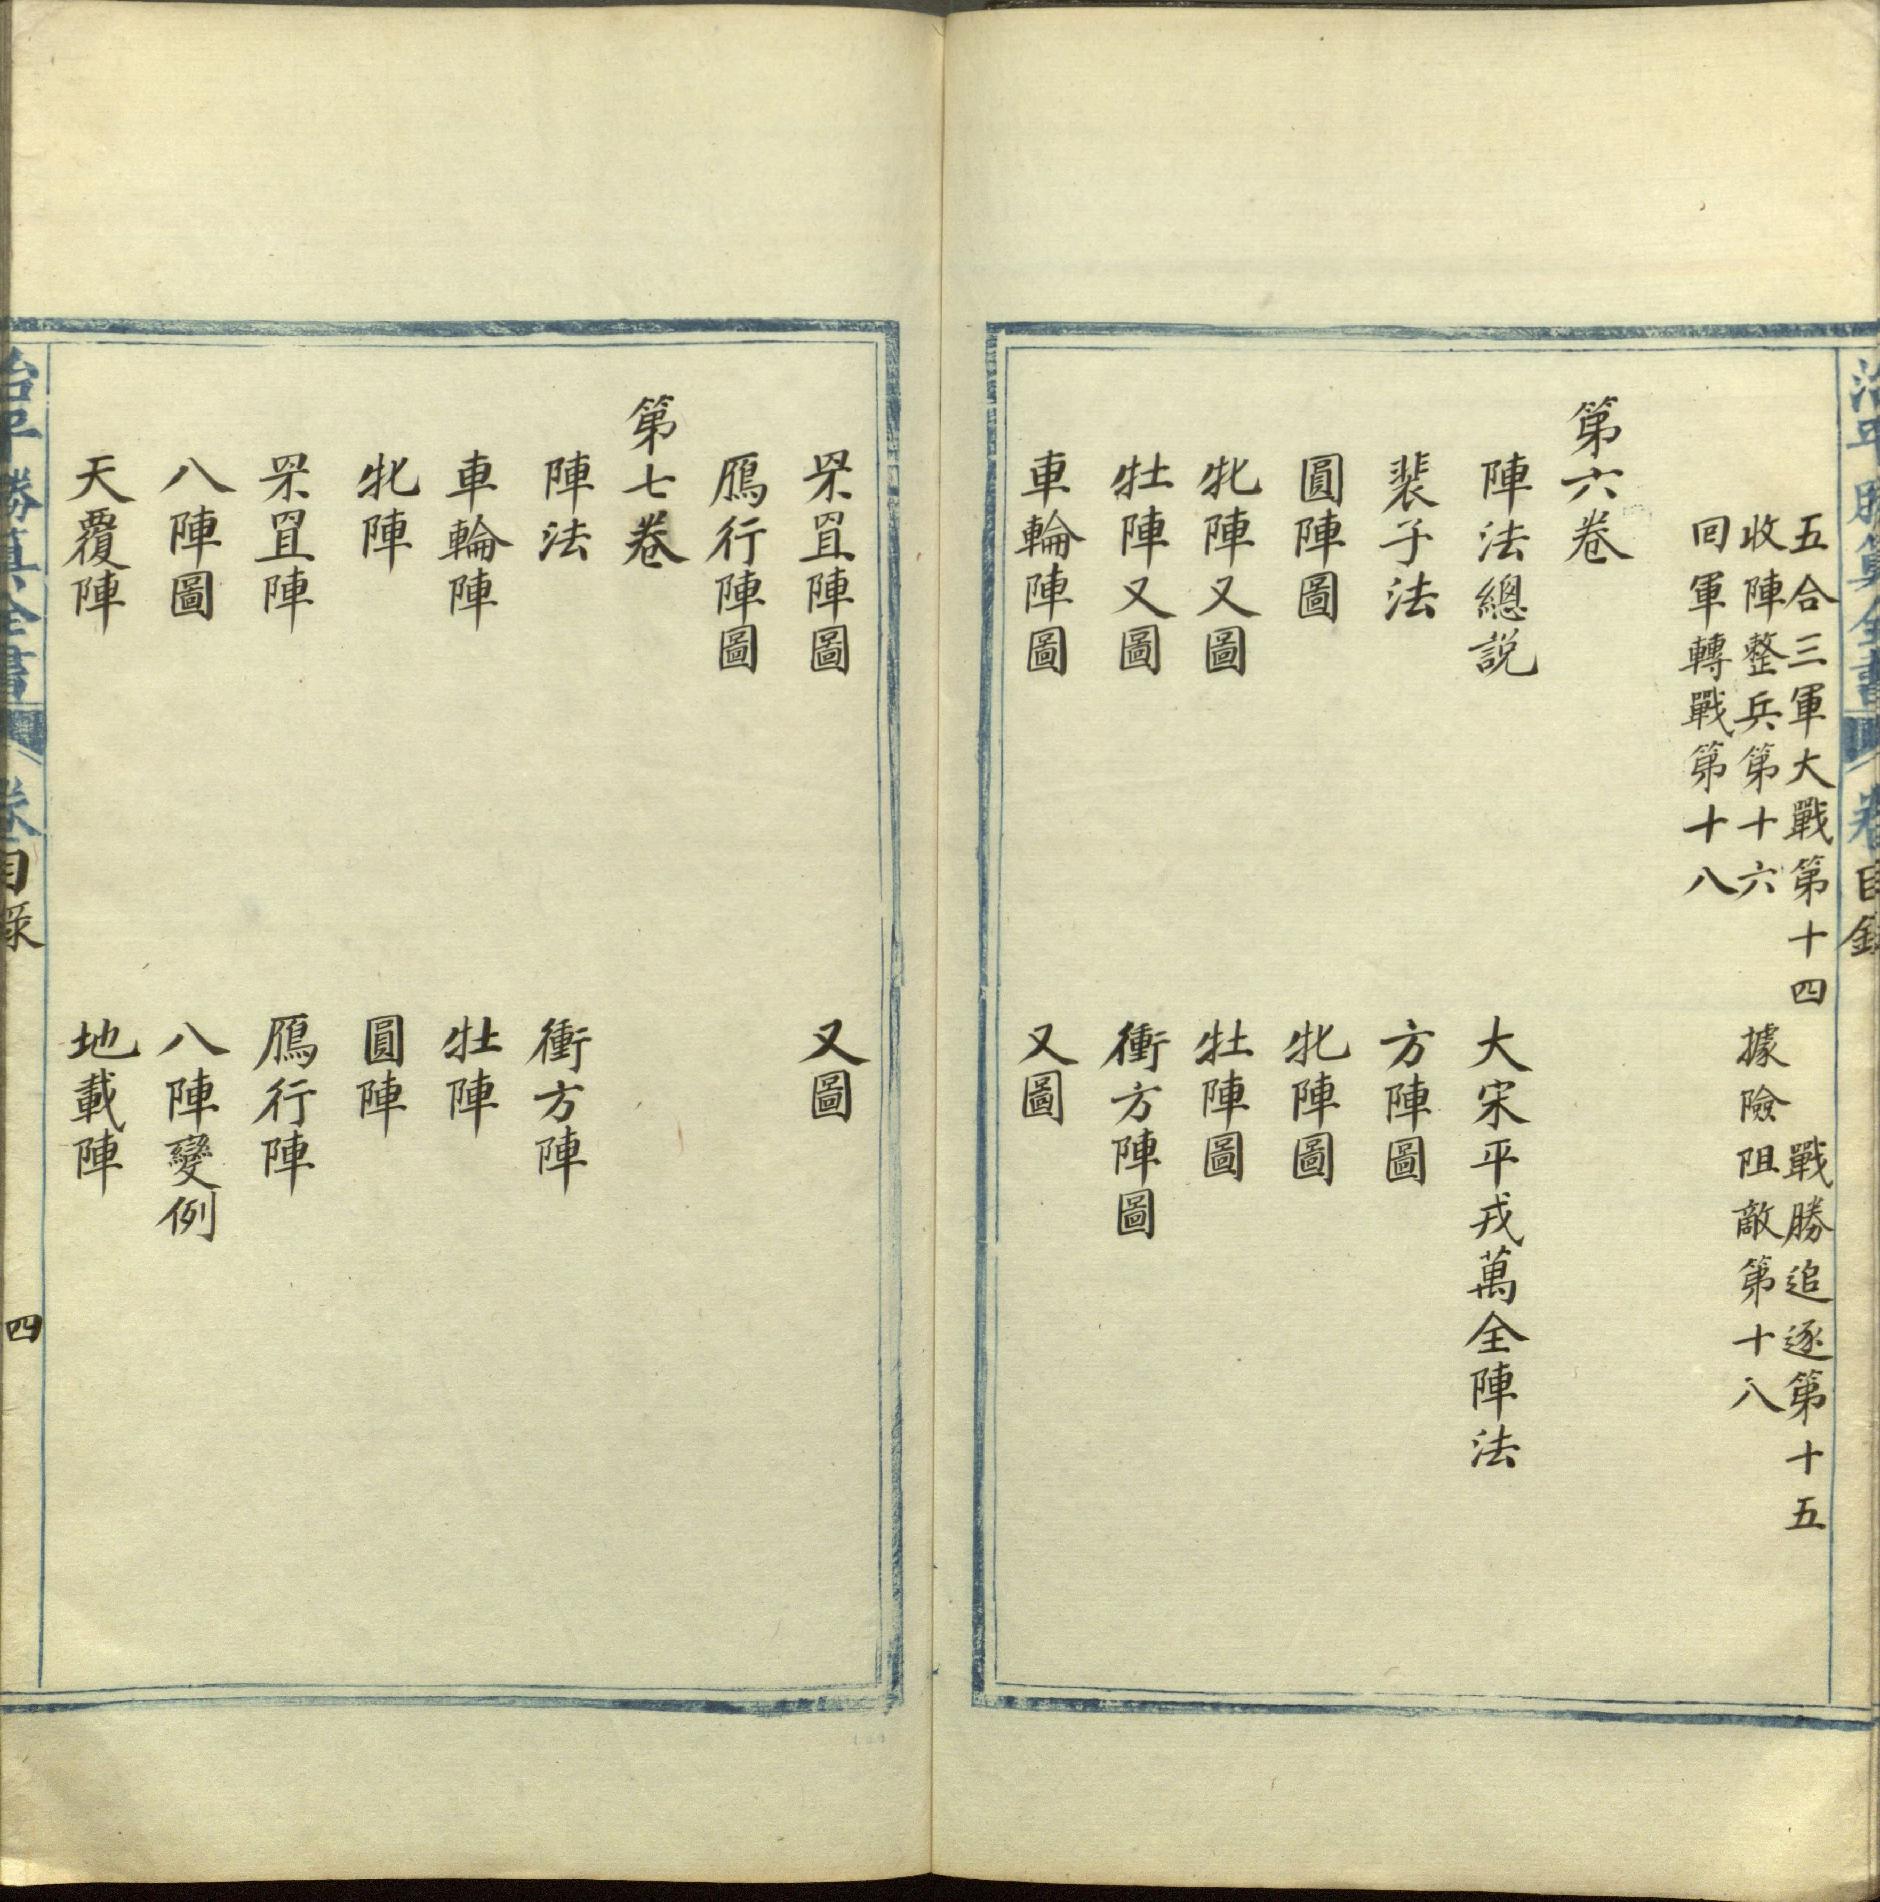 治平勝算全書 卷目錄
五合三軍大戰第十四 戰勝追逐第十五
收陣整兵第十六 據險阻敵第十八
回軍轉戰第十八
第六卷
陣法總説 大宋平戎萬全陣法
裴子法 方陣圖
圓陣圖 牝陣圖
牝陣又圖 牡陣圖
牡陣又圖 衝方陣圖
車輪陣圖 又圖
罘罝陣圖 又圖
鴈行陣圖
第七卷
陣法 衝方陣
車輪陣 牡陣
牝陣 圓陣
罘罝陣 鴈行陣
八陣圖 八陣變例
天覆陣 地載陣
治平勝算全書 卷目錄 四